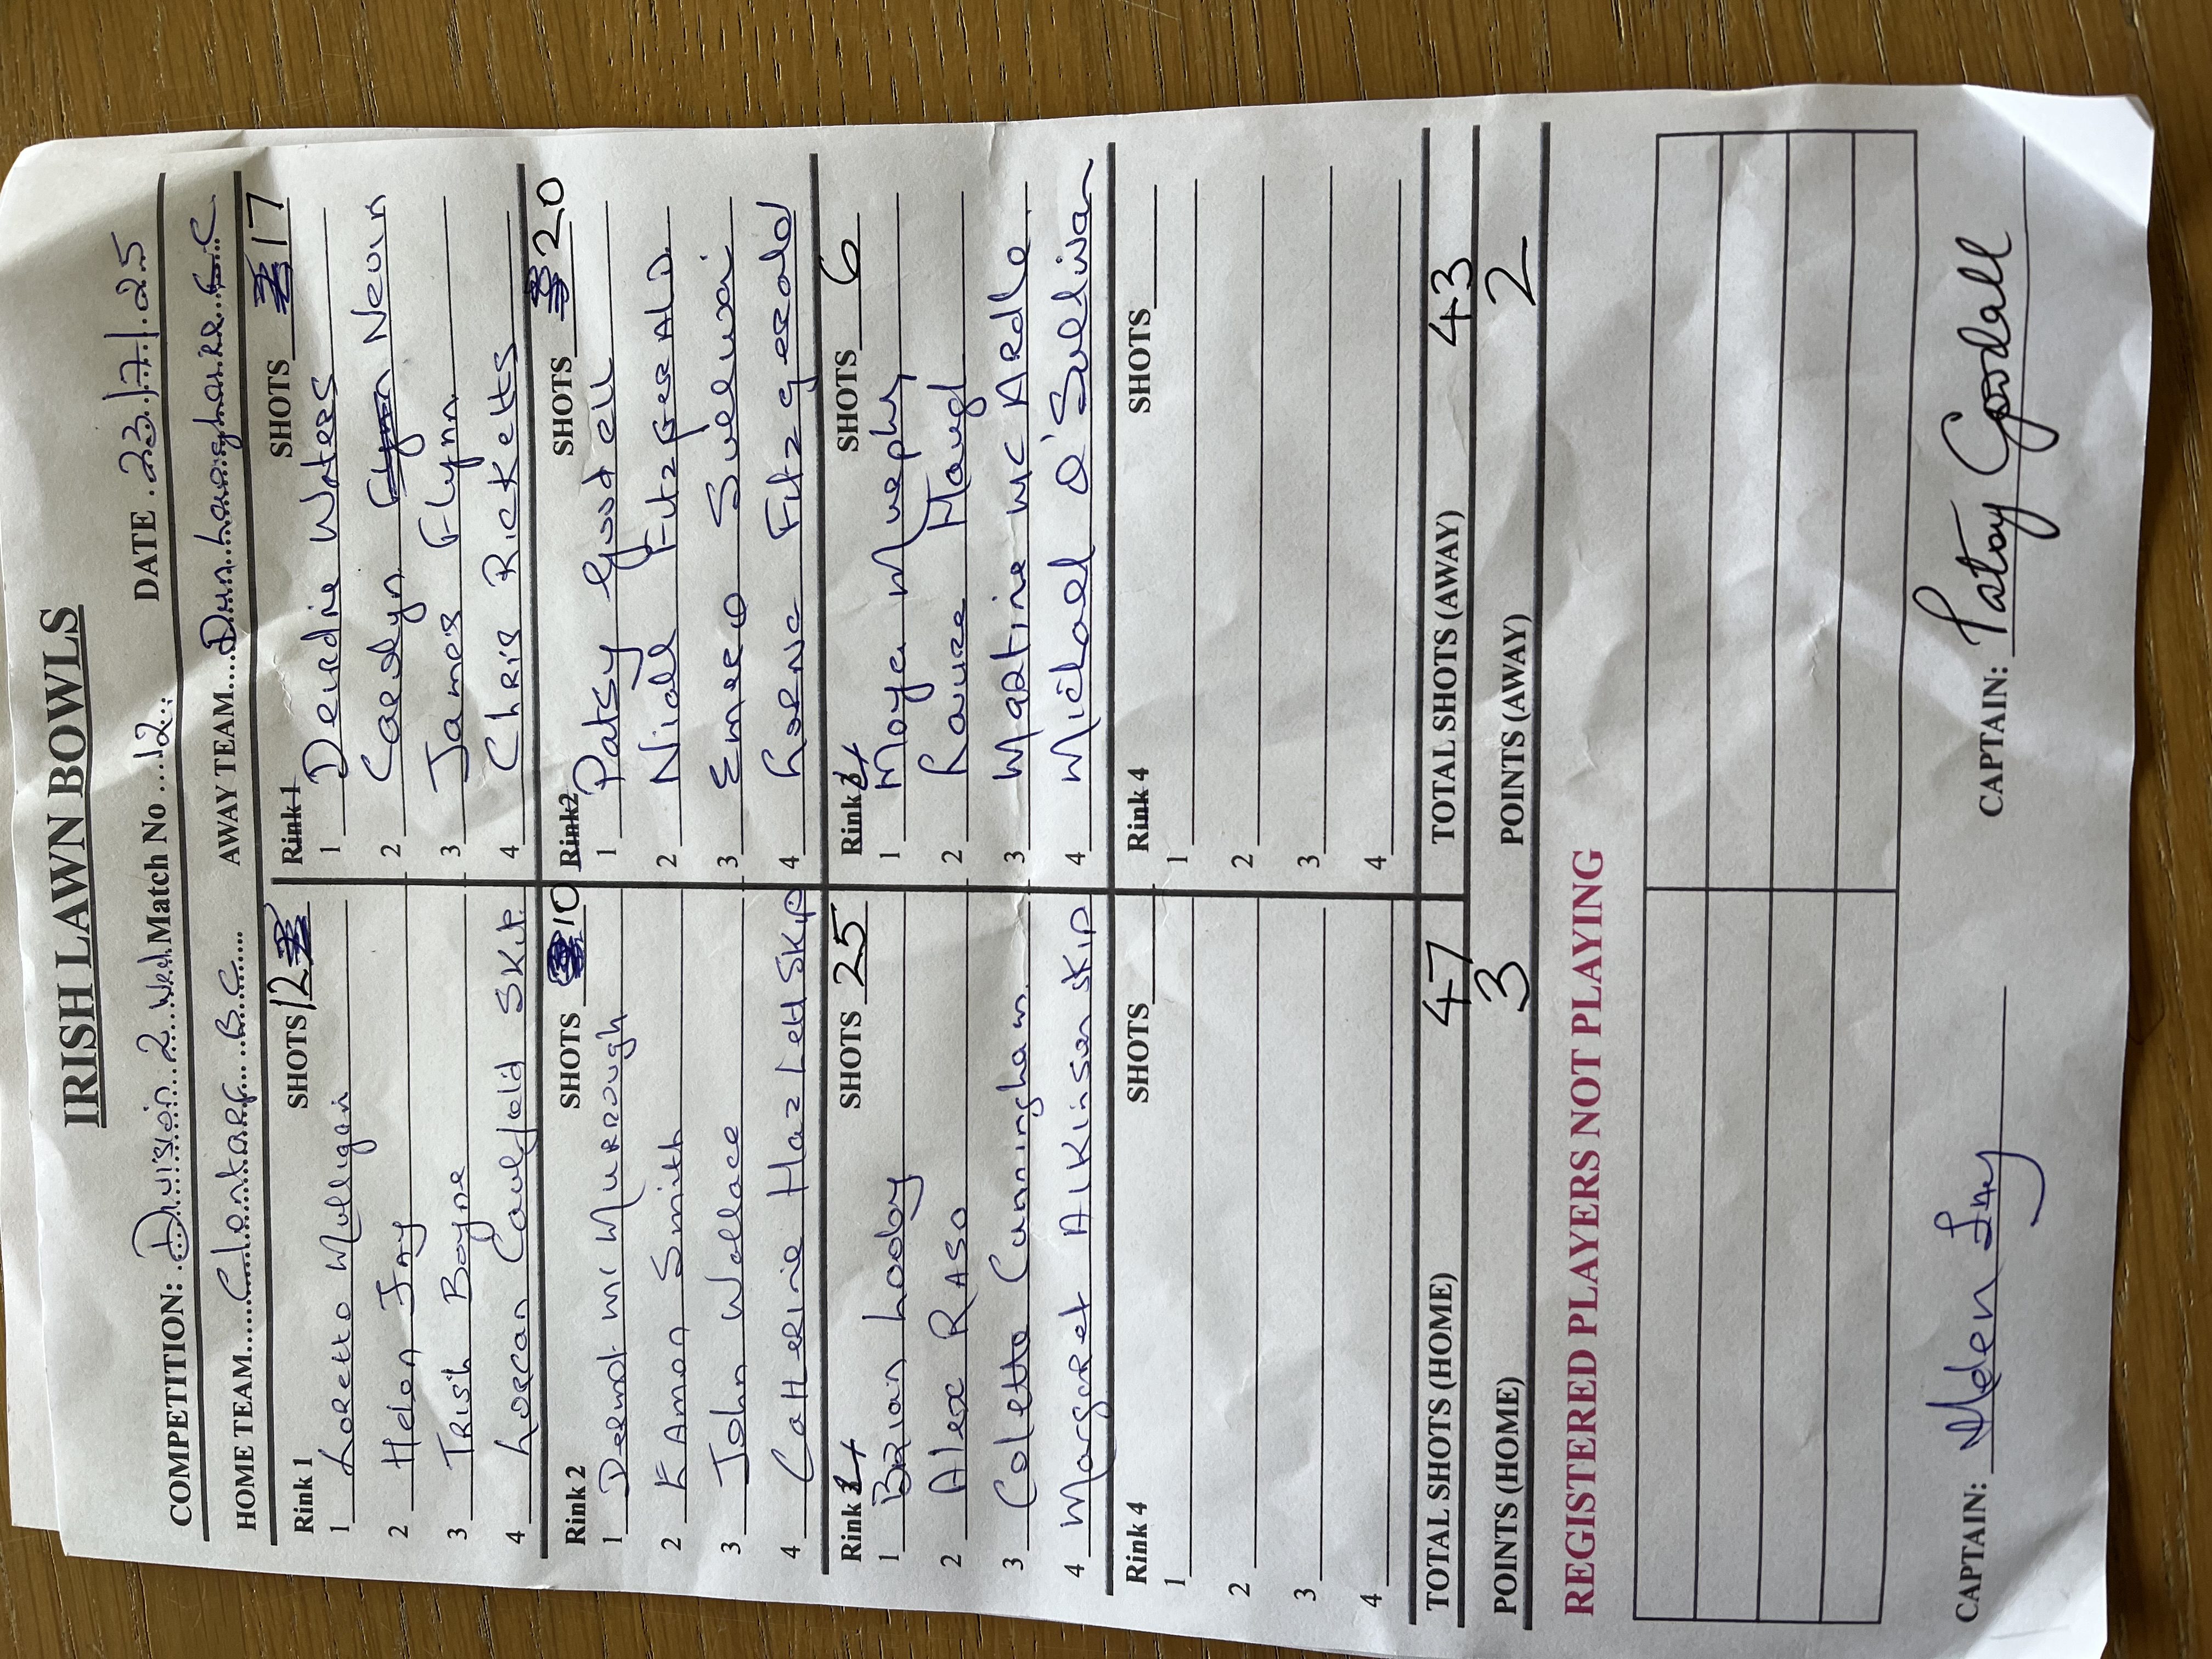 IRISH LAWN BOWLS
COMPETITION: Division 2 Wed Match No 12 DATE 23/7/25
HOME TEAM Clontarf B.C. AWAY TEAM Dun Laoghaire B.C
Rink 1 SHOTS 12 Rink 1 SHOTS 17
1 Loretto Mulligan 1 Deirdre Waters
2 Helen Jny 2 Carolyn Nevin
3 Trish Boyne 3 James Flynn
4 Lorcan Caulfield Skip 4 Chris Ricketts
Rink 2 SHOTS 10 Rink2 SHOTS 20
1 Dermot Mc Murrough 1 Patsy Goodall
2 EAmon Smith 2 Niall FitzgerAld
3 John Wallace 3 Emer
4 Catherine Hazlett Skip 4 Lorna Fitzgerald
Rink 4 SHOTS 25 Rink 4 SHOTS 6
1 Brian Looby 1 Moya Murphy
2 Alex Raso 2 Laura
3 Colette Cunningham 3 Martine Mc Ardle
4 Margaret Atkinson Skip 4 Michael O'Sullivan
Rink 4 SHOTS Rink 4 SHOTS
1 1
2 2
3 3
4 4
TOTAL SHOTS (HOME) 47 TOTAL SHOTS (AWAY) 43
POINTS (HOME) 3 POINTS (AWAY) 2
REGISTERED PLAYERS NOT PLAYING
CAPTAIN: Helen Jny CAPTAIN: Patsy Goodall